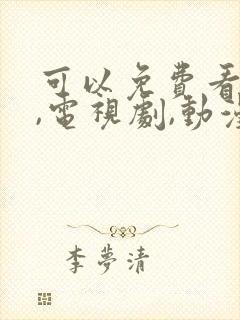 可以免費看
,電視劇,動漫
李夢清